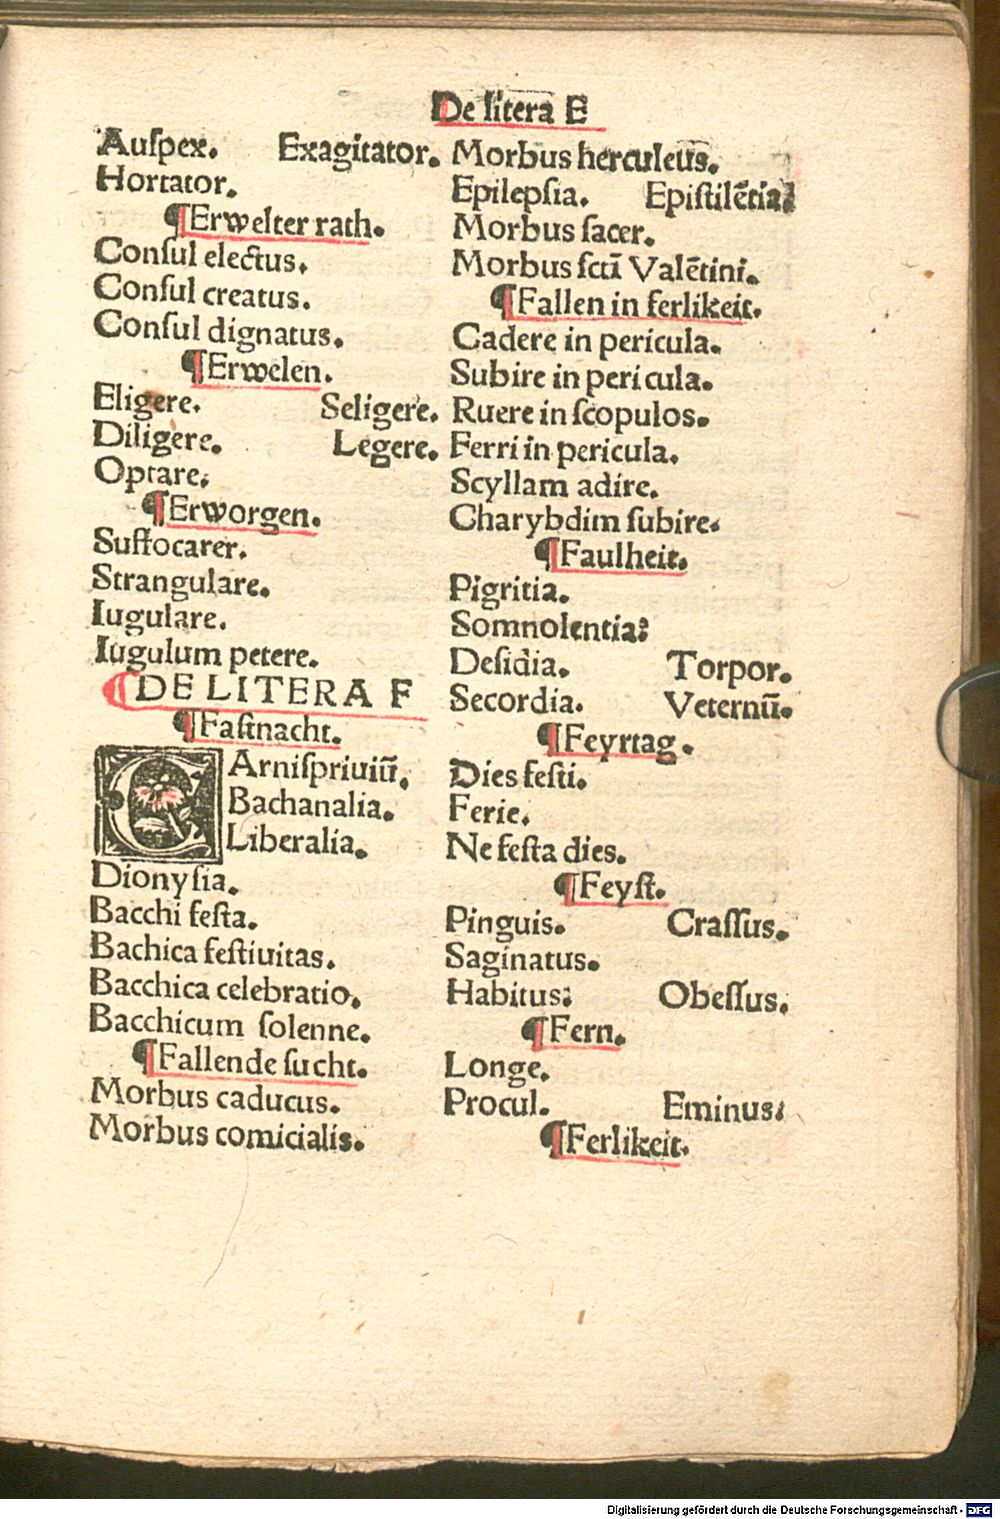 De litera E
Auſpex. Exagitator.
Hortator.
¶Erwelter rath.
Conſul electus.
Conſul creatus.
Conſul dignatus.
¶Erwelen.
Eligere. Seligere.
Diligere. Legere.
Optare.
¶Erworgen.
Suffocarer.
Strangulare.
Iugulare.
Iugulum petere.
DE LITERA F
¶Faſtnacht.
CArniſpriuiū.
Bachanalia.
Liberalia.
Dionyſia.
Bacchi feſta.
Bachica feſtiuitas.
Bacchica celebratio.
Bacchicum ſolenne.
¶Fallende ſucht.
Morbus caducus.
Morbus comicialis.
Morbus herculeus.
Epilepſia. Epiſtilētia.
Morbus ſacer.
Morbus ſctī Valētini.
¶Fallen in ferlikeit.
Cadere in pericula.
Subire in pericula.
Ruere in ſcopulos.
Ferri in pericula.
Scyllam adire.
Charybdim ſubire.
¶Faulheit.
Pigritia.
Somnolentia:
Deſidia. Torpor.
Secordia. Veternū.
¶Feyrtag.
Dies feſti.
Ferie.
Ne feſta dies.
¶Feyſt.
Pinguis. Craſſus.
Saginatus.
Habitus: Obeſſus.
¶Fern.
Longe.
Procul. Eminus:
¶Ferlikeit.
Digitalisierung gefördert durch die Deutsche Forschungsgemeinschaft - DFG